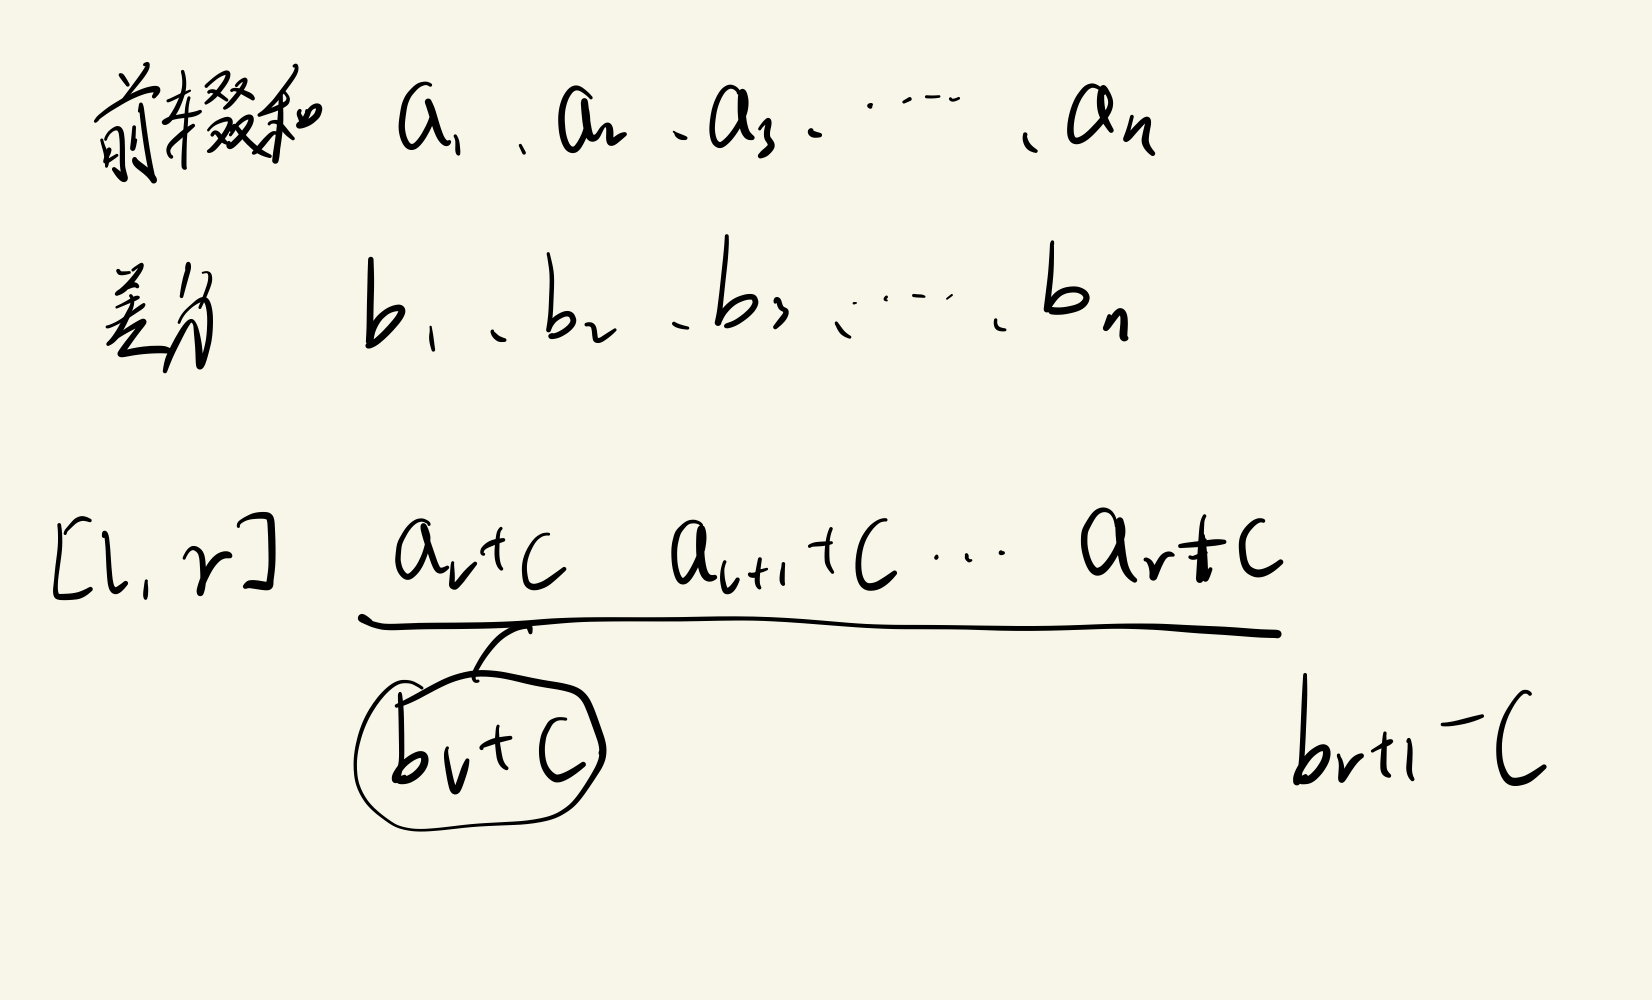 前缀和 a₁、a₂、a₃、……、aₙ
差分 b₁、b₂、b₃、……、bₙ
[l, r] aₗ+C aₗ₊₁+C … aᵣ+C
bₗ+C bᵣ₊₁-C